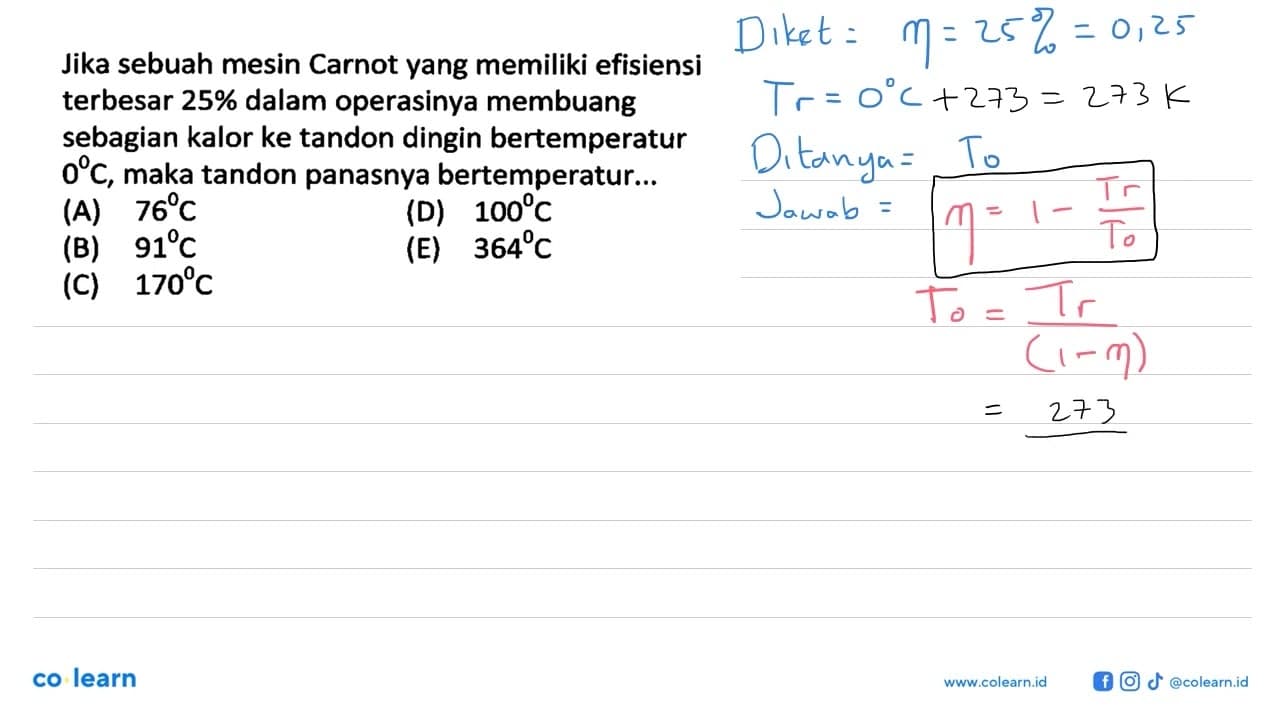 Jika sebuah mesin Carnot yang memiliki efisiensi
terbesar 25% dalam operasinya membuang
sebagian kalor ke tandon dingin bertemperatur
0⁰C, maka tandon panasnya bertemperatur...
(A) 76⁰C (D) 100⁰C
(B) 91⁰C (E) 364⁰C
(C) 170⁰C
Diket = η = 25% = 0,25
Tr = 0°C + 273 = 273 K
Ditanya = To
Jawab = η = 1 - Tr/To
To = Tr/(1-η)
= 273
co learn
www.colearn.id
@colearn.id